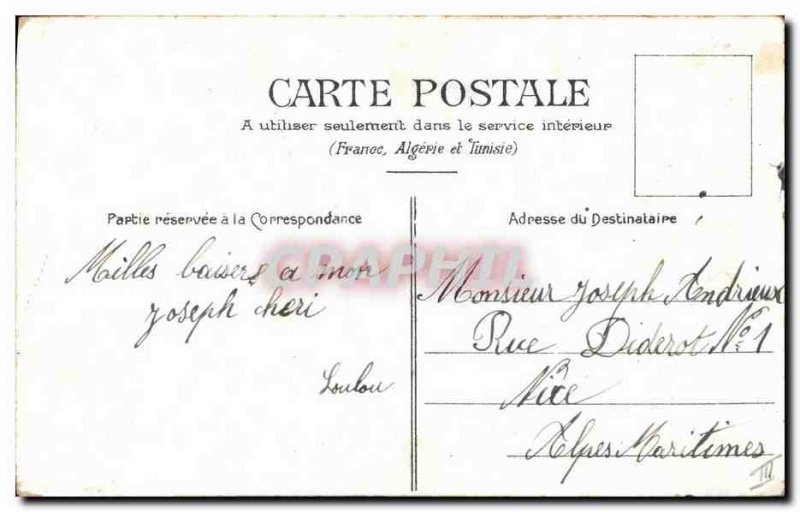 CARTE POSTALE
A utiliser seulement dans le service intérieur
(France, Algérie et Tunisie)
Partie réservée à la Correspondance
Adresse du Destinataire
Milles baisers a mon
Joseph cheri
Loulou
Monsieur Joseph Andrieux
Rue Diderot No 1
Nice
Alpes Maritimes
III
CPAPHIL